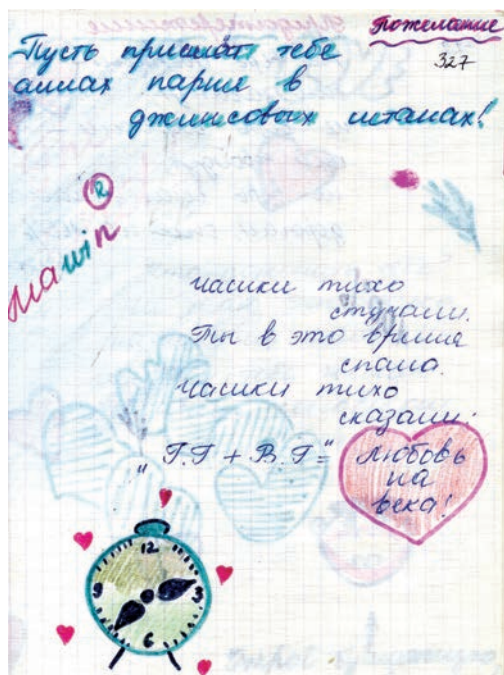 Пожелание
327
Пусть пришлёт тебе
аллах парня в
джинсовых штанах!
R
Mawin
Часики тихо
стучали.
Ты в это время
спала.
Часики тихо
сказали:
„Г.Г + В.Г=" любовь
на
века!
12
9 3
6